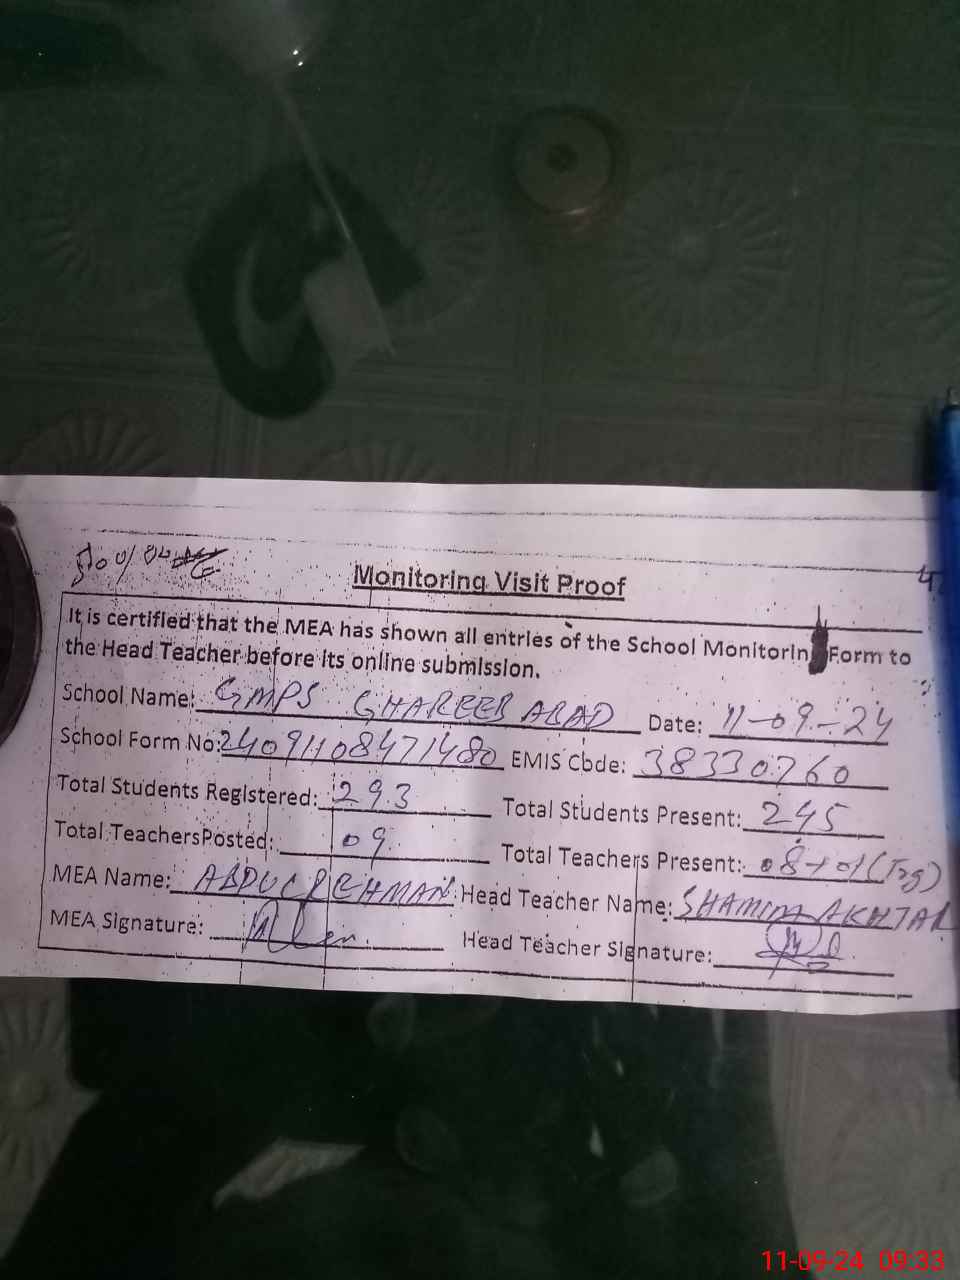 Monitoring Visit Proof
It is certified that the MEA has shown all entries of the School Monitorin Form to
the Head Teacher before its online submission.
School Name: GMPS GHAREEB ABAD Date: 11-09-24
School Form No: 24091108471480 EMIS Code: 38330760
Total Students Registered: 293 Total Students Present: 245
Total TeachersPosted: 09 Total Teachers Present: 08+01(Trg)
MEA Name: ABDUL REHMAN Head Teacher Name: SHAMIM AKHTAR
MEA Signature: Head Teacher Signature:
11-09-24 09:33